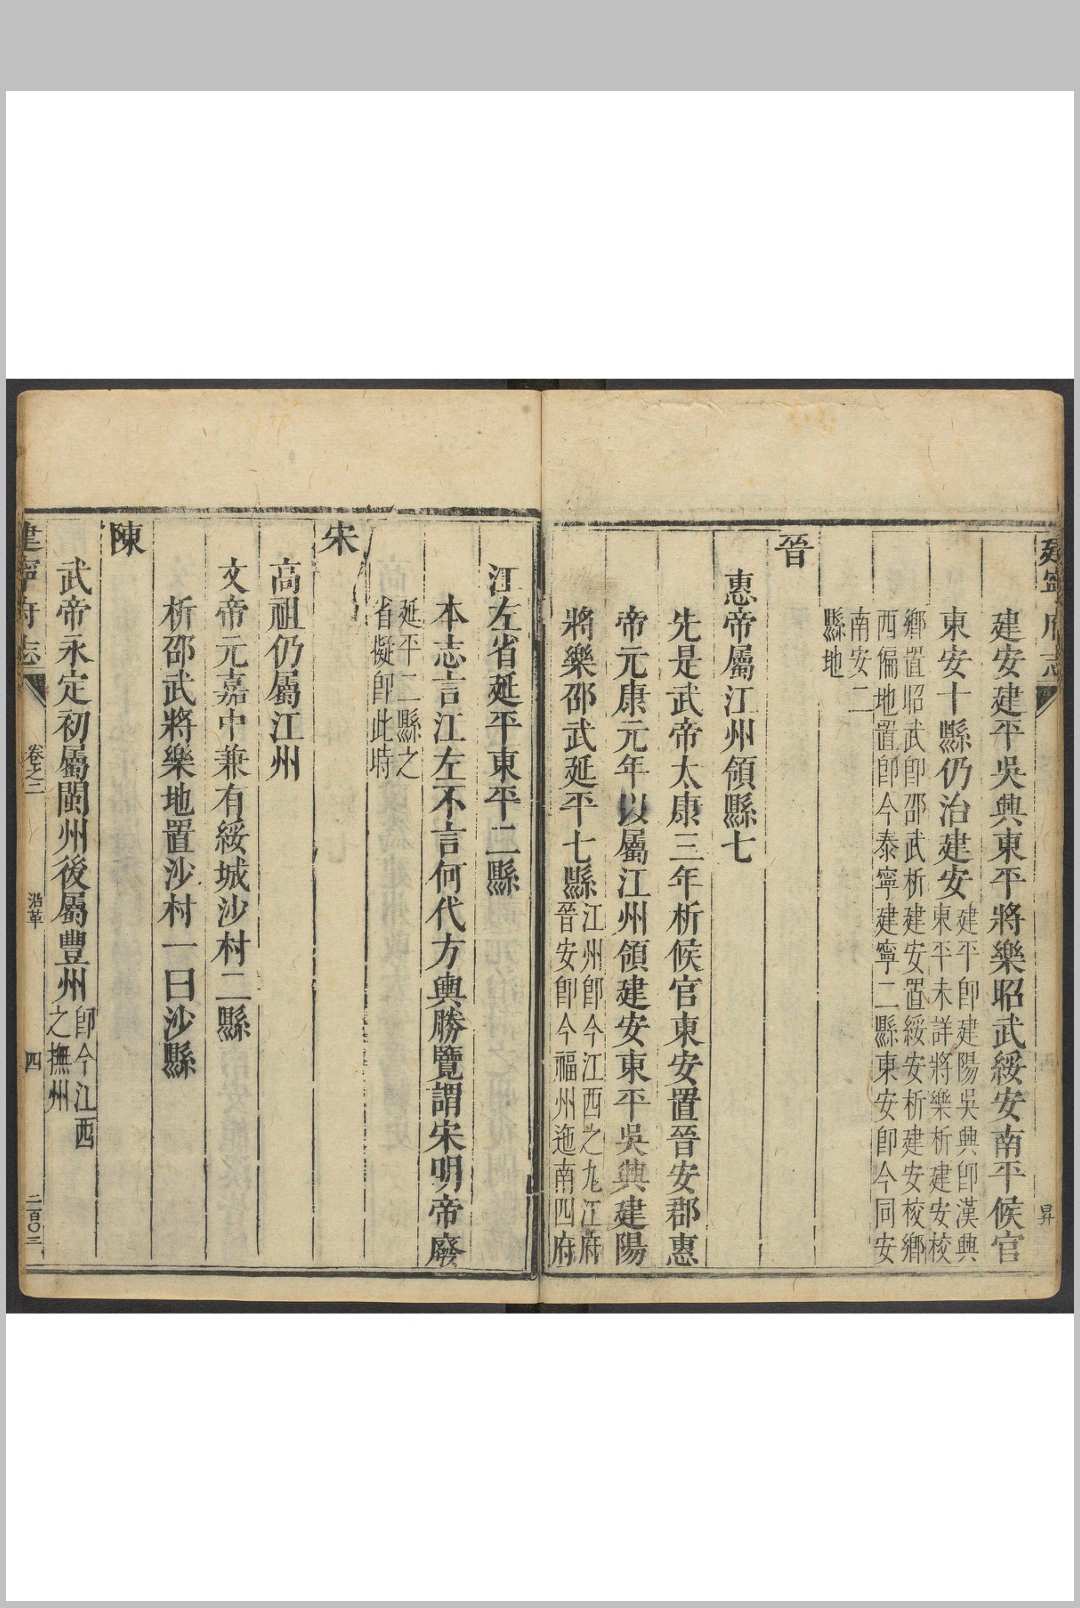 建寧府志
昇
建安建平吳興東平將樂昭武綏安南平候官
東安十縣仍治建安
建平卽建陽吳興卽漢興
東平未詳將樂析建安校
鄉置昭武卽邵武析建安置綏安析建安校鄉
西偏地置卽今泰寧建寧二縣東安卽今同安
南安二
縣地
晉
惠帝屬江州領縣七
先是武帝太康三年析候官東安置晉安郡惠
帝元康元年以屬江州領建安東平吳興建陽
將樂邵武延平七縣
江州卽今江西之九江府
晉安卽今福州迤南四府
江左省延平東平二縣
本志言江左不言何代方輿勝覽謂宋明帝廢
延平二縣之
省擬卽此時
宋
高祖仍屬江州
文帝元嘉中兼有綏城沙村二縣
析邵武將樂地置沙村一曰沙縣
陳
武帝永定初屬閩州後屬豐州
卽今江西
之撫州
建寧府志
卷之二
沿革
四
二百〇三